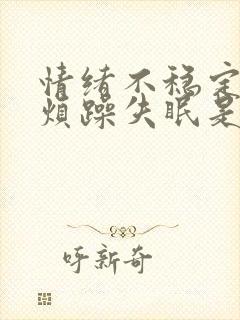 情绪不稳定
烦躁失眠是
呼新奇